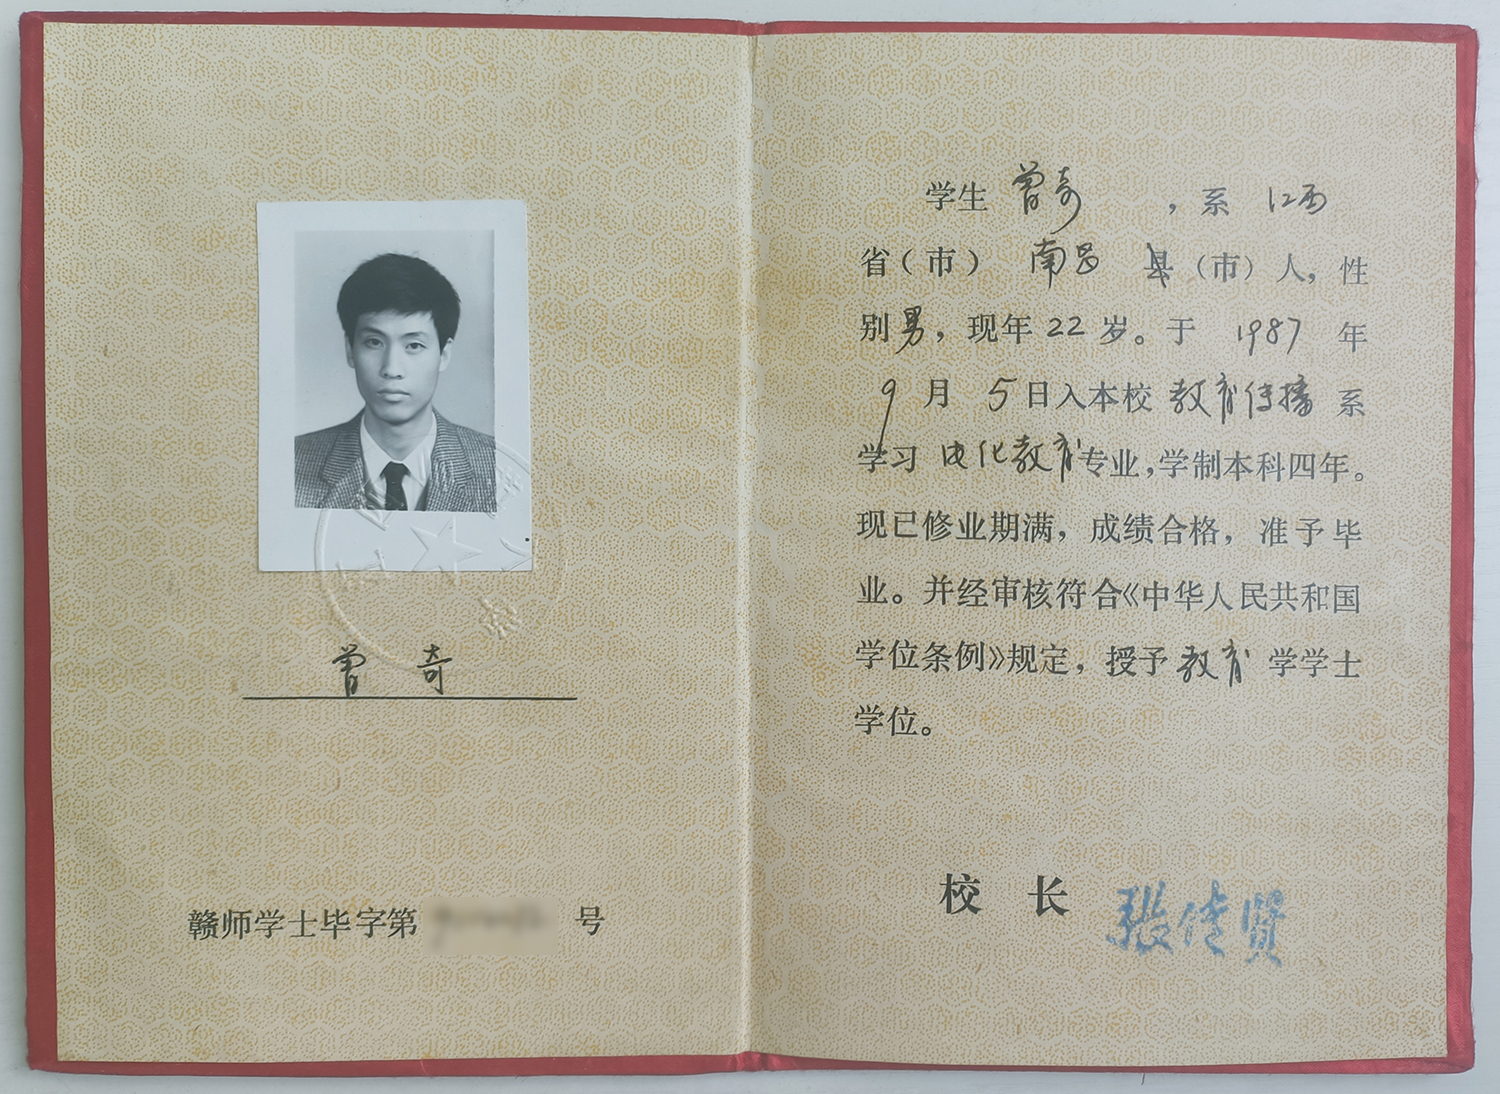 曾奇
赣师学士毕字第 号
学生 曾奇 ，系 江西
省（市） 南昌 县（市）人，性
别男，现年22岁。于 1987 年
9月 5日入本校 教育传播 系
学习 电化教育专业，学制本科四年。
现已修业期满，成绩合格，准予毕
业。并经审核符合《中华人民共和国
学位条例》规定，授予教育学学士
学位。
校 长 張佳賢